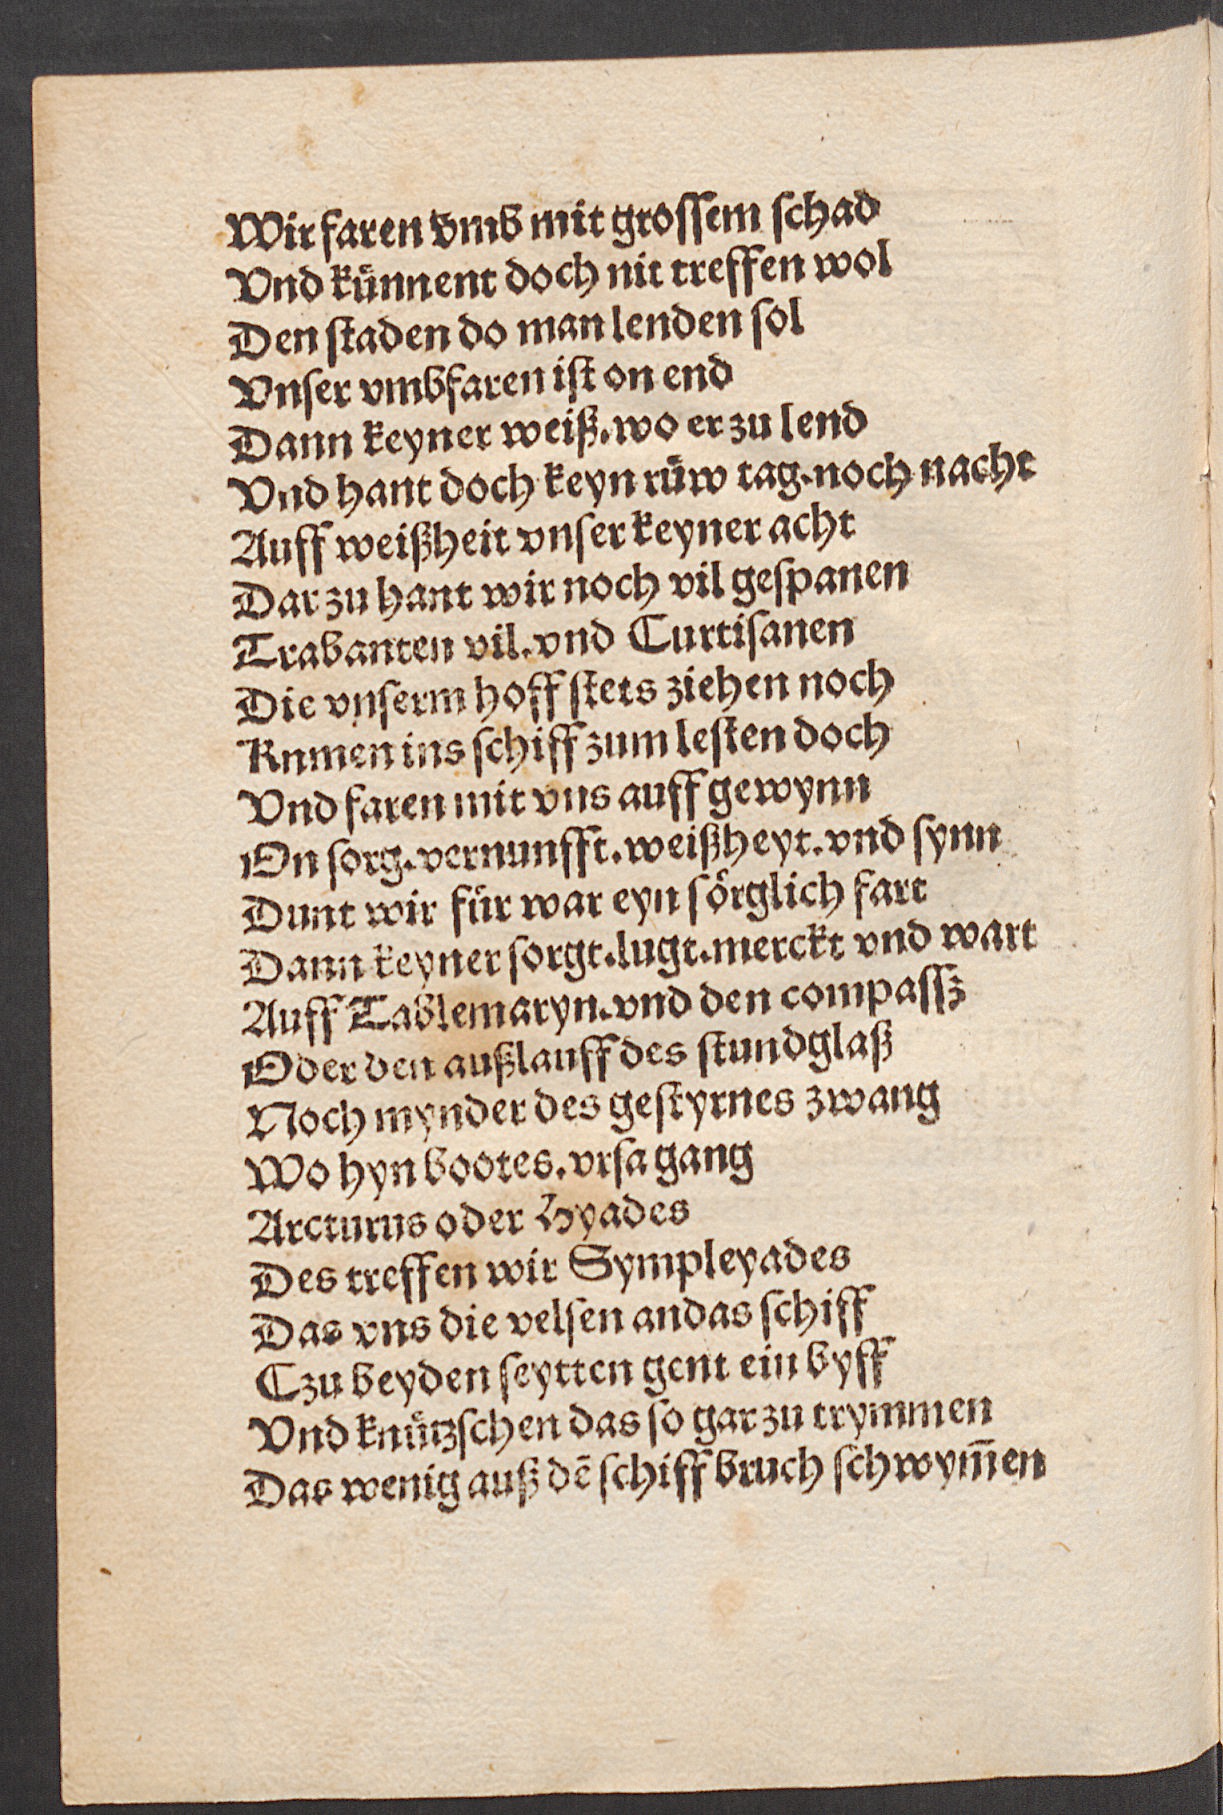 Wir faren vmb mit grossem schad
Vnd ku̍nnent doch nit treffen wol
Den staden do man lenden sol
Vnser vmbfaren ist on end
Dann keyner weiß.wo er zu lend
Vnd hant doch keyn ru̍w tag.noch nacht
Auff weißheit vnser keyner acht
Dar zu hant wir noch vil gespanen
Trabanten vil.vnd Curtisanen
Die vnserm hoff stets ziehen noch
Knmen ins schiff zum lesten doch
Vnd faren mit vns auff gewynn
On sorg.vernunfft.weißheyt.vnd synn
Dunt wir für war eyn sörglich fart
Dann keyner sorgt.lugt.merckt vnd wart
Auff Tablemaryn.vnd den compassz
Oder den außlauff des stundglaß
Noch mynder des gestyrnes zwang
Wo hyn bootes.vrsa gang
Arcturus oder Hyades
Des treffen wir Sympleyades
Das vns die velsen an das schiff
Czu beyden seytten gent ein byff
Vnd knu̍tzschen das so gar zu trymmen
Das wenig auß dē schiff bruch schwym̄en